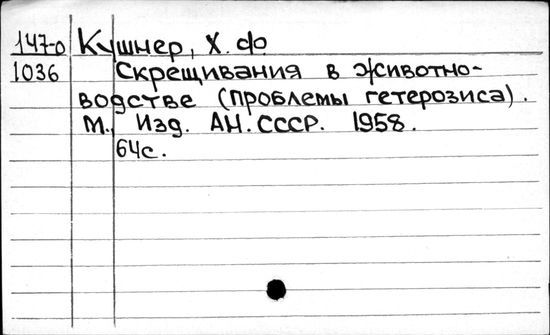 147-0 Кушнер, Х. Ф
1036 Скрещивания в животно-
водстве (проблемы гетерозиса).
М., Изд. АН. СССР. 1958.
64с.